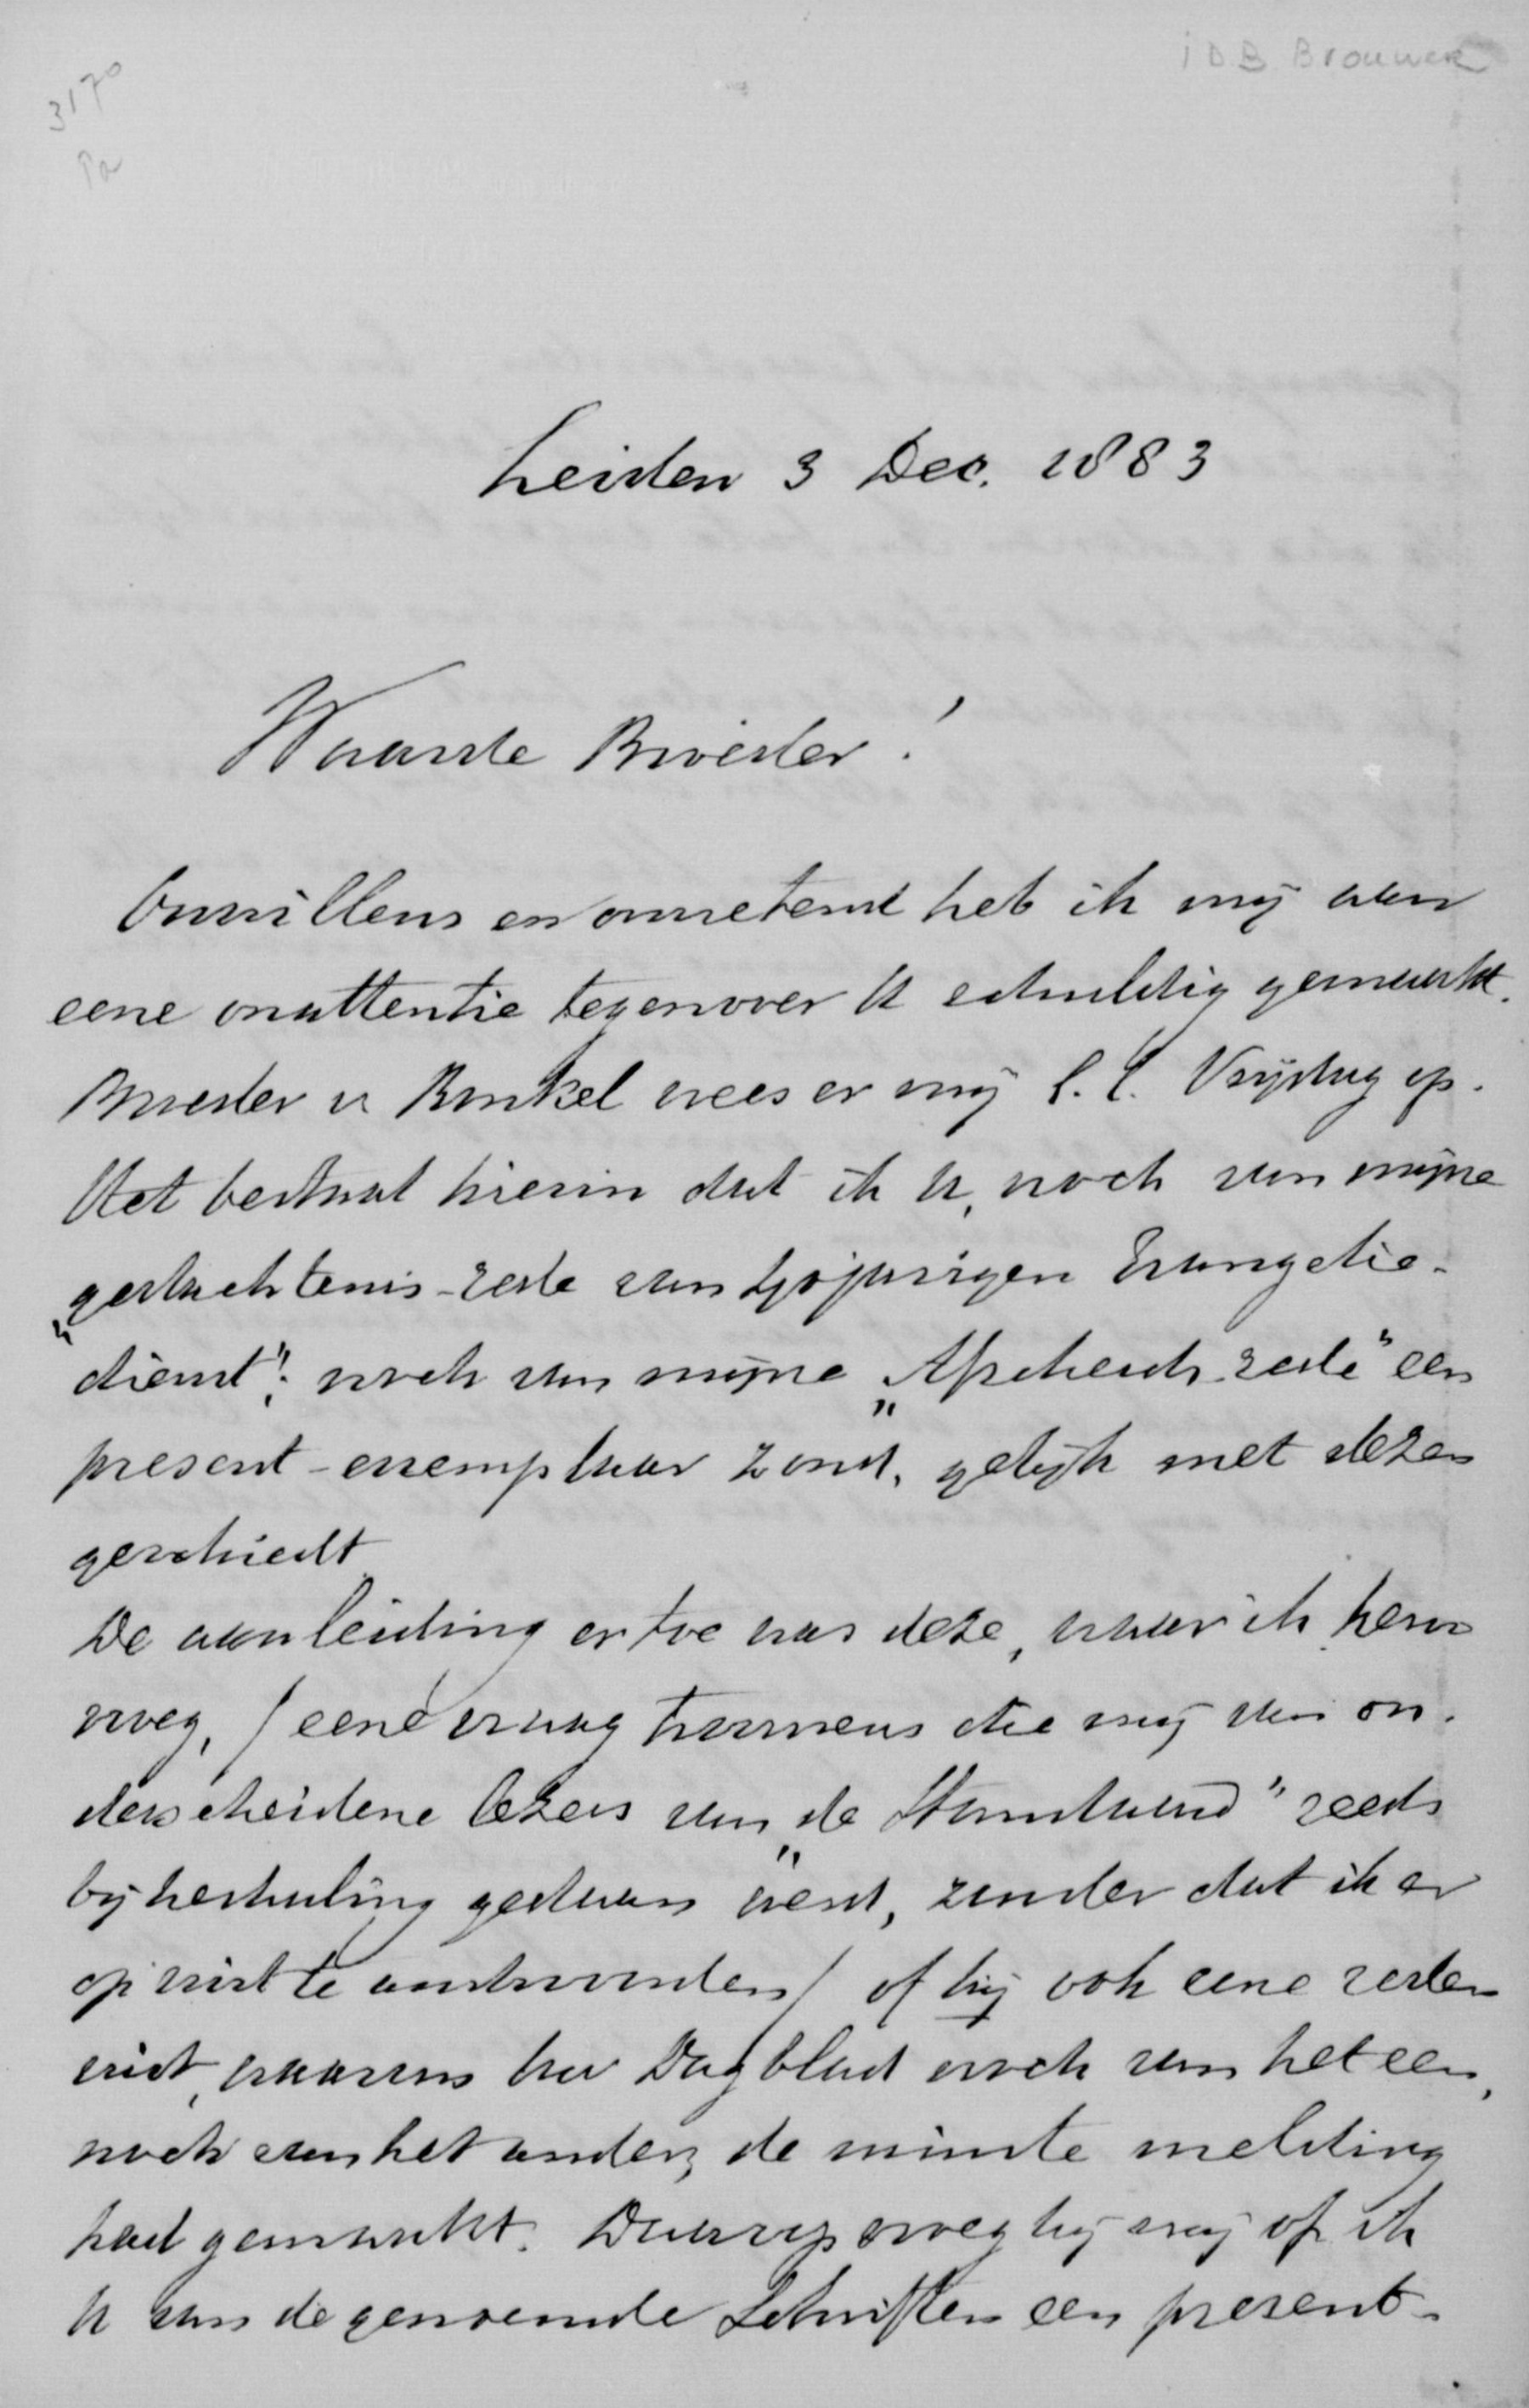 J D B Brouwer
3170
Pa
Leiden 3 Dec. 1883
Waarde Broeder!
Onwillens en onwetend heb ik mij aan
eene onattentie tegenover U schuldig gemaakt.
Broeder v Ronkel wees er mij l.l. Vrijdag op.
Het bestaat hierin dat ik U, noch van mijne
„gedachtenis-rede van 40jarigen Evangelie-
dienst", noch van mijne „Afscheids-rede" een
present-exemplaar zond, gelijk met dezen
geschiedt
De aanleiding ertoe was deze, waar ik hem
vroeg, (eene vraag trouwens die mij van on-
derscheidene lezers van „de Standaard" reeds
bij herhaling gedaan werd, zonder dat ik er
op wist te antwoorden) of hij ook eene reden
wist, waarom het Dagblad noch van het een,
noch van het ander, de minste melding
had gemaakt. Daarop vroeg hij mij of ik
U van de genoemde Schriften een present-